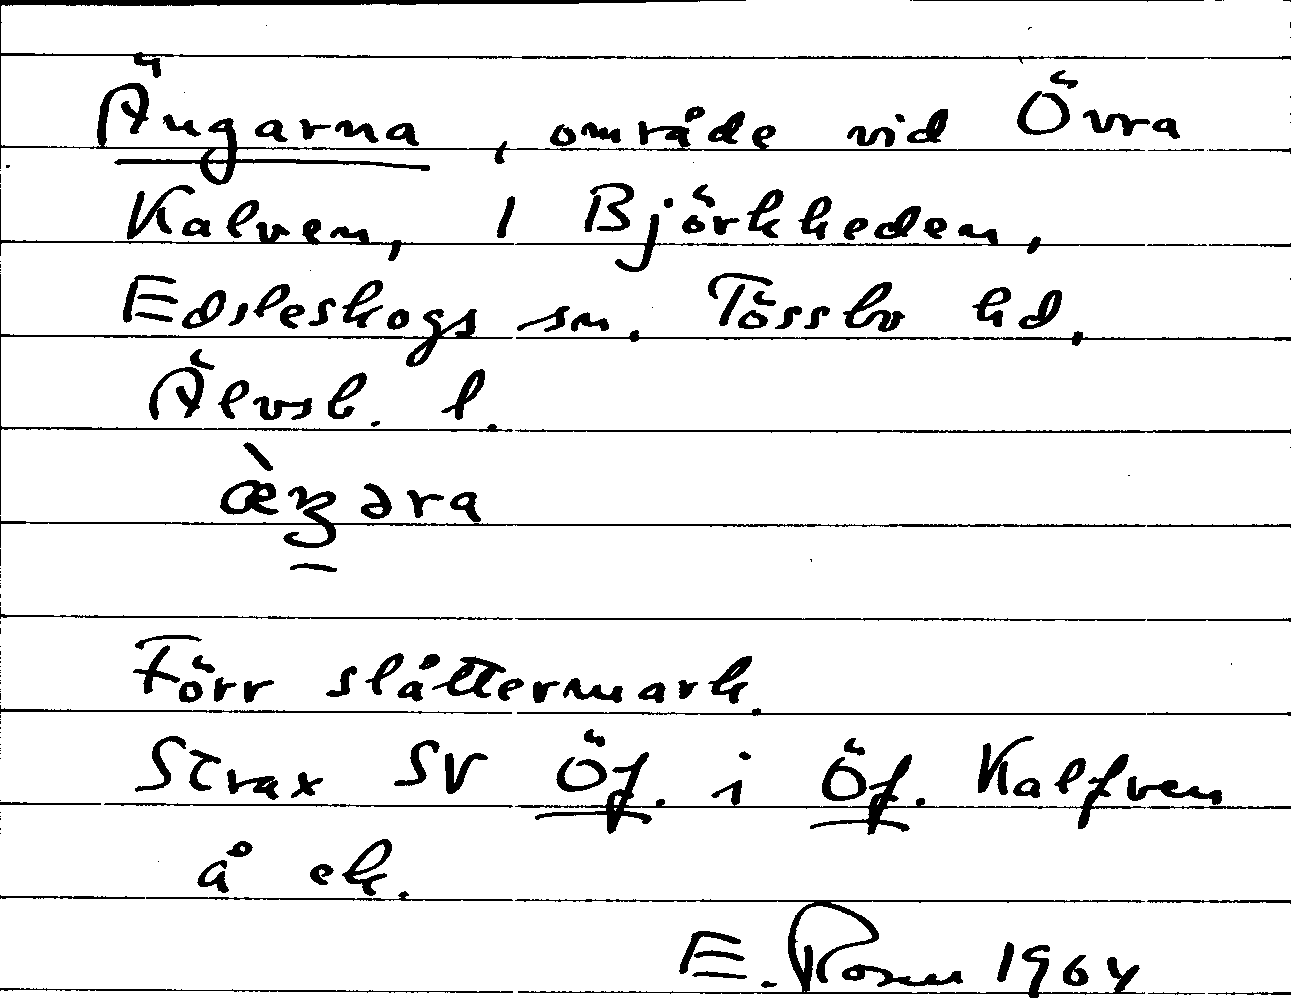 Ängarna, område vid Övra
Kalven, 1 Björkheden,
Edsleskogs sn. Tössbo hd.
Älvsb. l.
Förr slåttermark.
Strax SV Öf. i Öf. Kalfven
å ek.
E. Rosen 1964